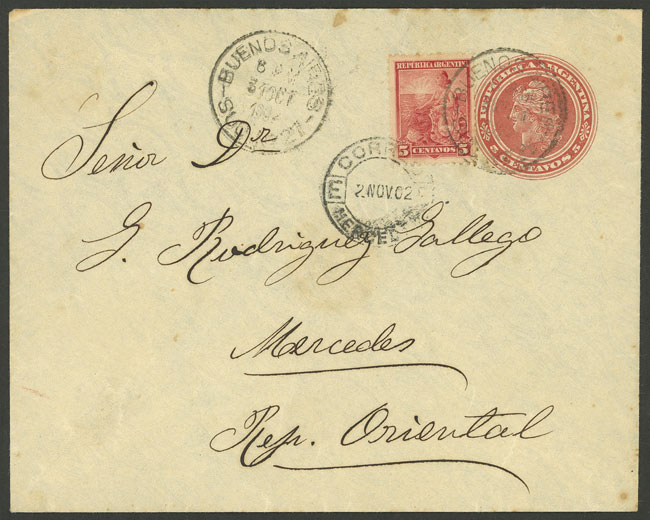 BUENOS AIRES
OCT
REPÚBLICA ARGENTINA
5 CENTAVOS 5
REPUBLICA ARGENTINA
5 CENTAVOS 5
BUENOS
CORREOS
2 NOV. 02
MERCEDES
Señor Dr
G. Rodriguez Gallego
Mercedes
Rep. Oriental